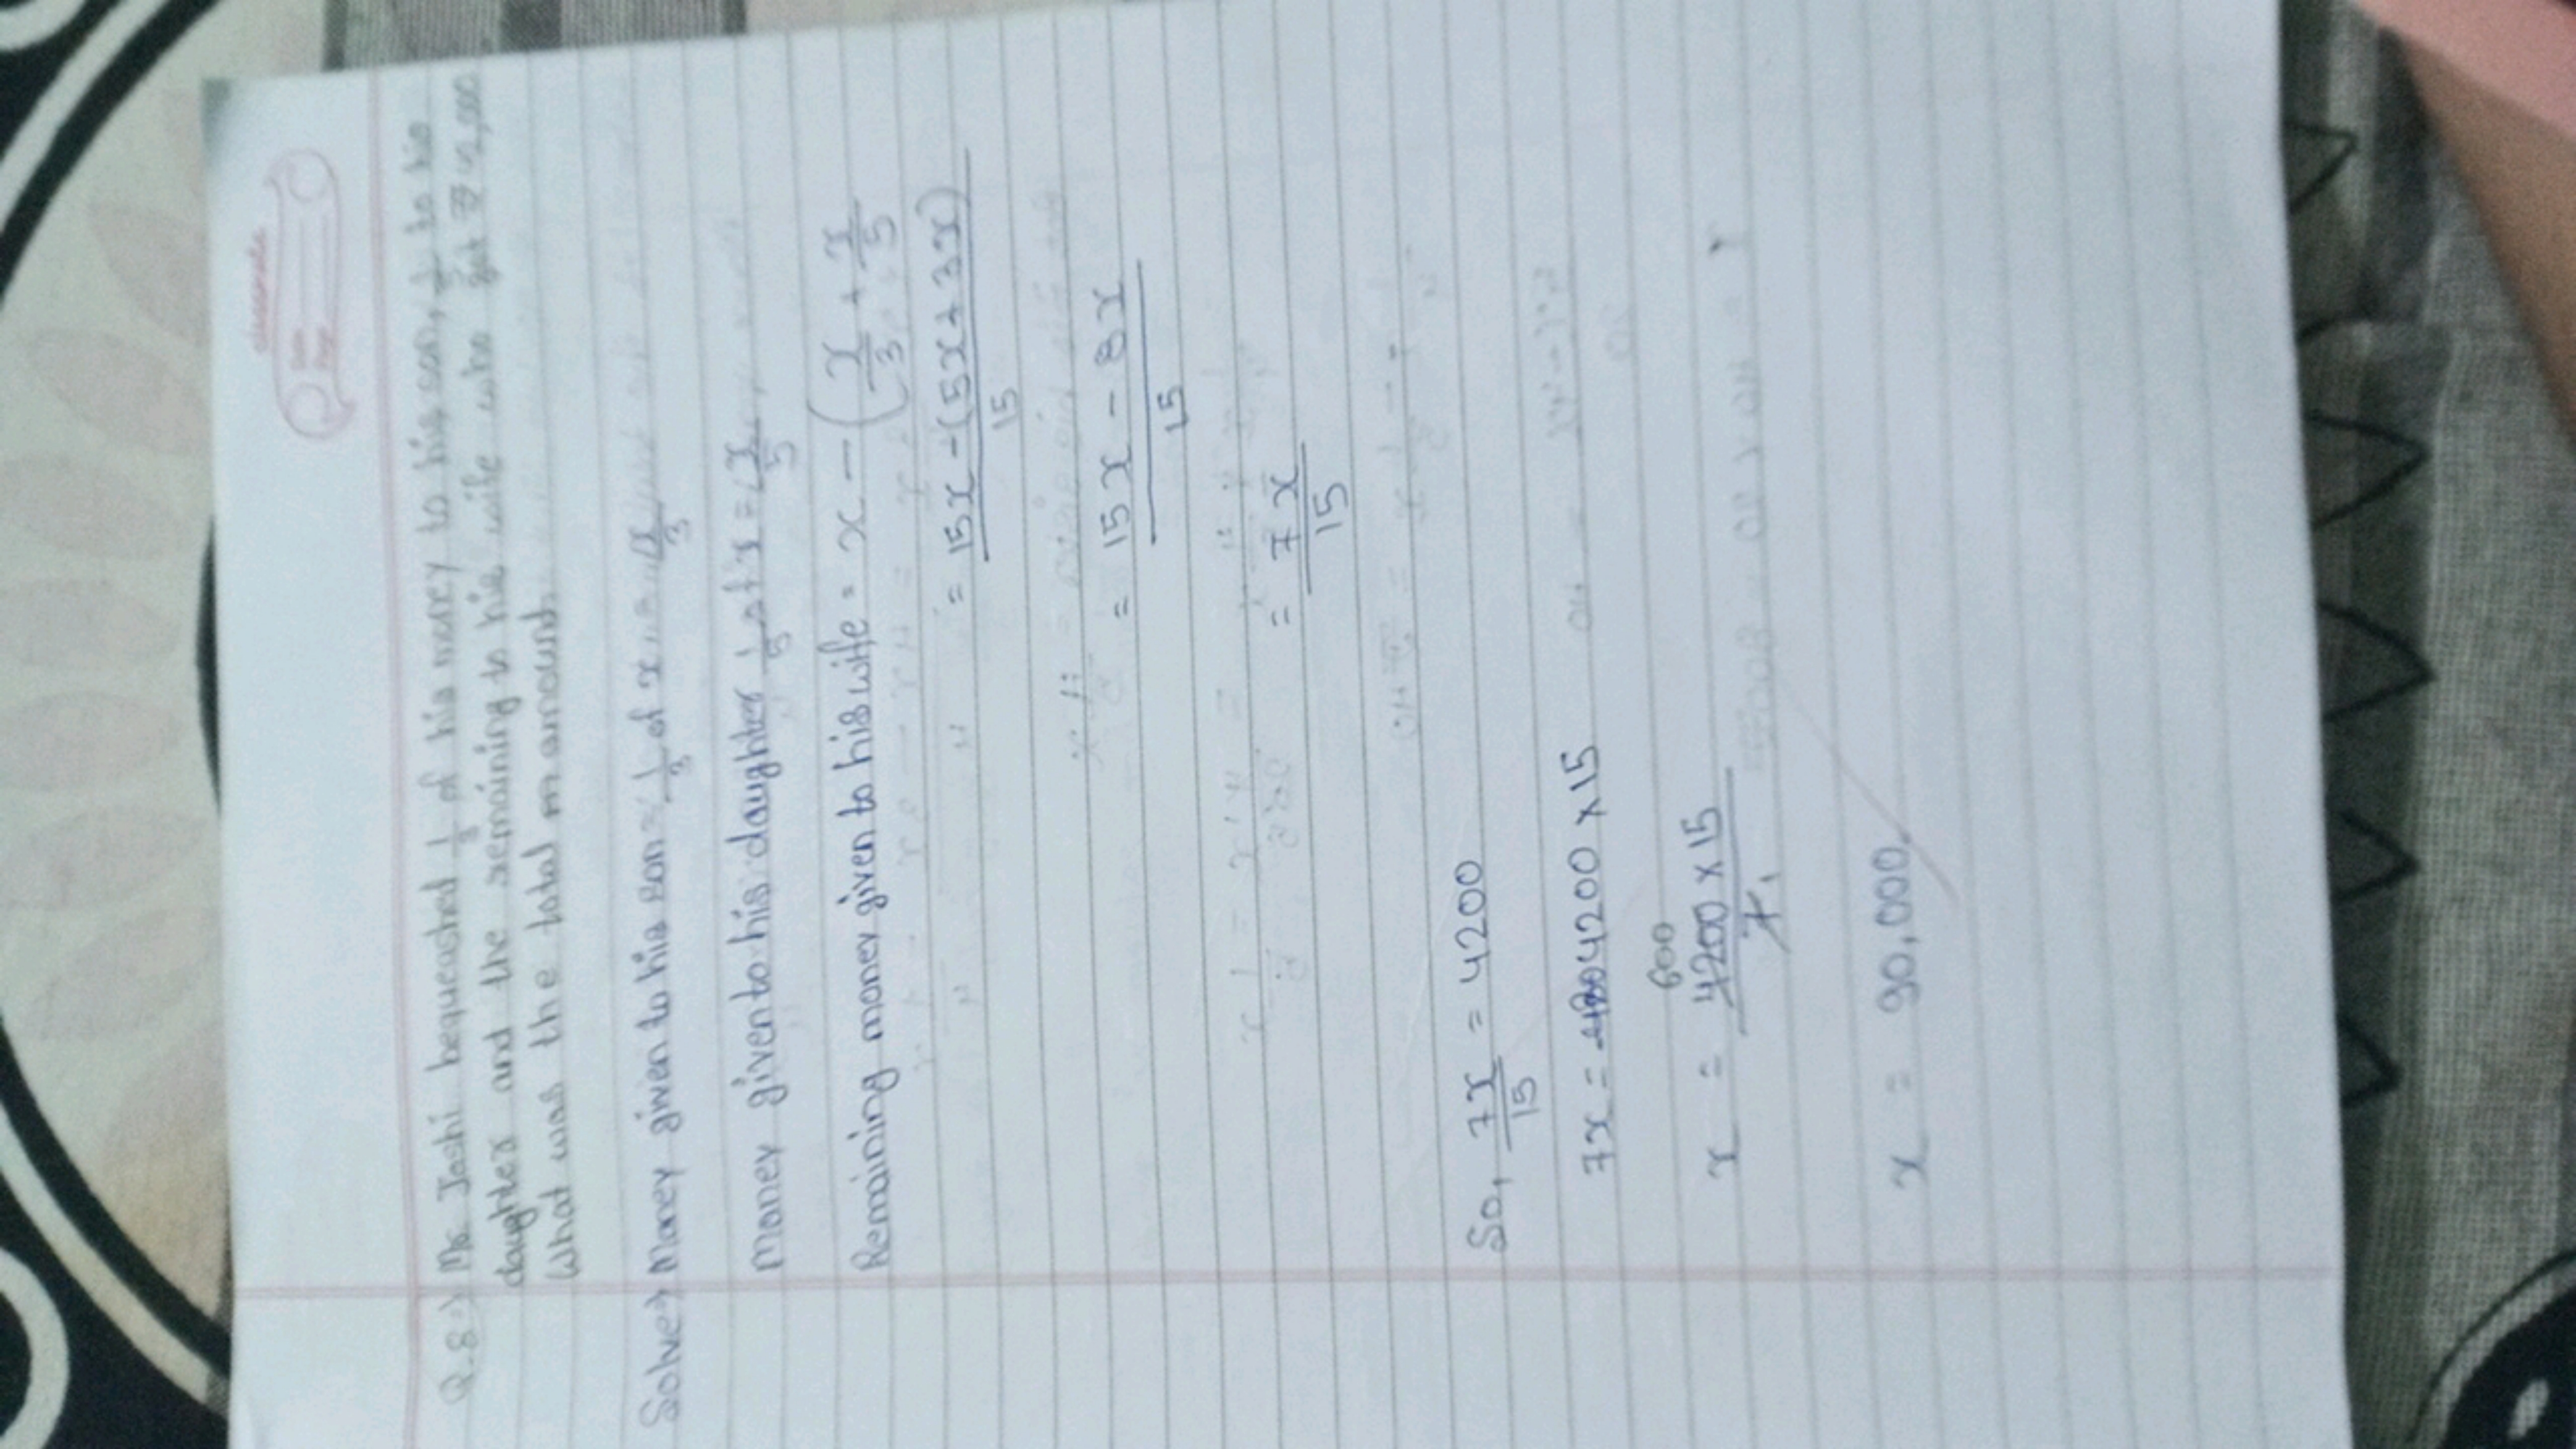 Q.8→) Mr. Joshi bequeashed 1/3 of his money to his son, 1/5 to his
daughter and the remaining to his wife who got ₹ 42,000
What was the total m amound.
Solve→) Money given to his son = 1/3 of x = x/3
Money given to his daughter 1/5 of x = x/5
Remaining money given to his wife = x - (x/3 + x/5
= 15x - (5x + 3x)/15
= 15x - 8x/15
= 7x/15
So, 7x/15 = 4200
7x = 4200 × 15
600
x = 4200 × 15/7 1
x = 90,000